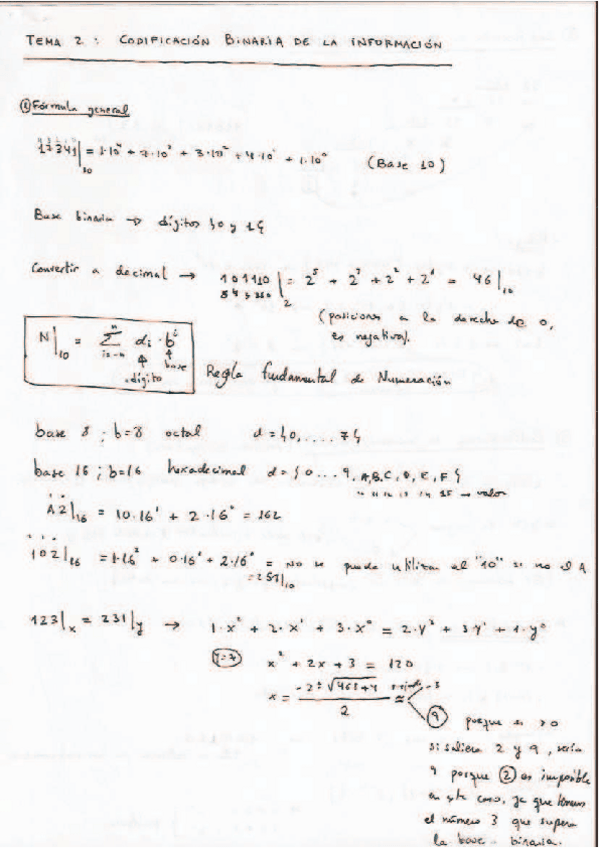 TEMA 2 : CODIFICACIÓN BINARIA DE LA INFORMACIÓN
① Fórmula general
17341|₁₀ = 1·10⁴ + 7·10³ + 3·10² + 4·10¹ + 1·10⁰ (Base 10)
Base binaria → dígitos {0 y 1}
Convertir a decimal → 101110|₂ = 2⁵ + 2³ + 2² + 2¹ = 46|₁₀
543210
(posiciones a la derecha de 0, es negativa).
N|₁₀ = Σ dᵢ · bⁱ
n
i=-n
dígito
base
Regla fundamental de Numeración
base 8 ; b=8 octal d = {0, .... 7}
base 16 ; b=16 hexadecimal d = {0 ... 9, A, B, C, D, E, F}
10 11 12 13 14 15 → valor
A2|₁₆ = 10·16¹ + 2·16⁰ = 162
102|₁₆ = 1·16² + 0·16¹ + 2·16⁰ = No se puede utilizar el "10" si no el A
= 257|₁₀
123|ₓ = 231|y → 1·x² + 2·x¹ + 3·x⁰ = 2·y² + 3·y¹ + 1·y⁰
y=7
x² + 2x + 3 = 120
x = -2 ± √468+4 / 2 ≈
9 porque es >0
si saliera 2 y 9, sería
9 porque ② es imposible
en este caso, ya que tenemos
el número 3 que supera
la base binaria.